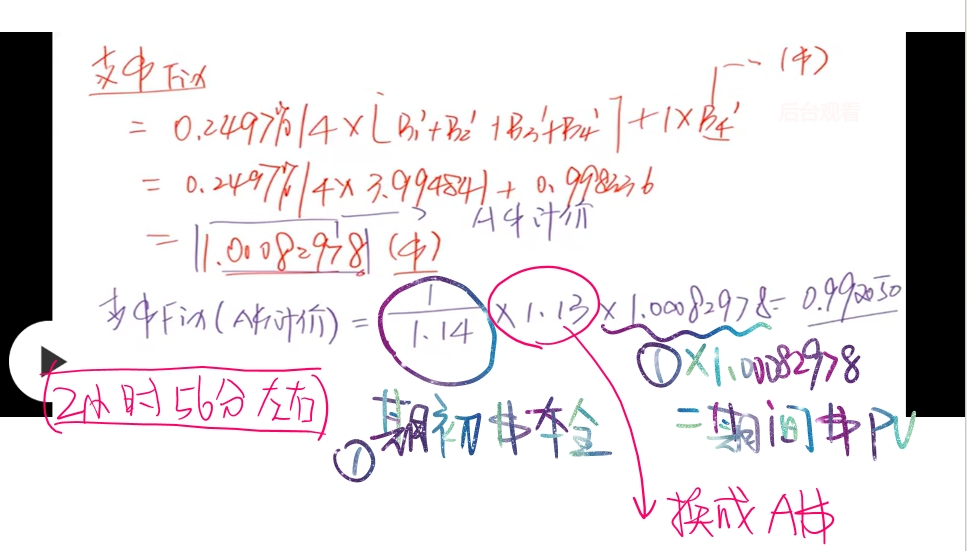 支$Fix
(中)
= 0.2497%/4×[B1'+B2'+B3'+B4']+1×B4'
后台观看
= 0.2497%/4×3.994841+0.998336
= 1.00082978 ($)
A$计价
支$Fix(A$计价) = 1/1.14 × 1.13 × 1.00082978 = 0.992050
① × 1.00082978
2小时56分左右
① 期初$本金
= 期间$PV
换成A$